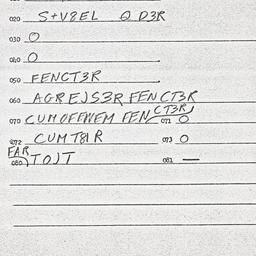 020 S+V8EL Q D3R
030 O
040 O
050 FENCT3R
060 AGREJS3R FENCT3R
070 CUMOFEWEM FEN(CT3R) 071 O
072 CUMT81R 073 O
FAR
080 TOJT 081 —